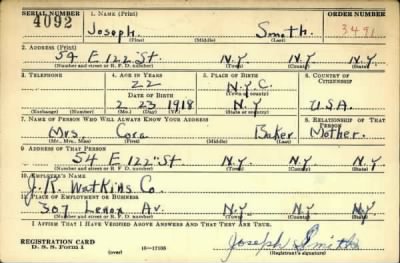 SERIAL NUMBER 1. NAME (Print) ORDER NUMBER
4092 Joseph Smith 3491
(First) (Middle) (Last)
2. ADDRESS (Print)
54 E 122 St. N.Y. N.Y.
(Number and street or R. F. D. number) (Town) (County) (State)
3. TELEPHONE 4. AGE IN YEARS 5. PLACE OF BIRTH 6. COUNTRY OF CITIZENSHIP
22 N.Y.C.
DATE OF BIRTH (Town or county)
2 23 1918 N.Y U.S.A.
(Exchange) (Number) (Mo.) (Day) (Yr.) (State or country)
7. NAME OF PERSON WHO WILL ALWAYS KNOW YOUR ADDRESS 8. RELATIONSHIP OF THAT PERSON
Mrs. Cora Baker Mother.
(Mr., Mrs., Miss) (First) (Middle) (Last)
9. ADDRESS OF THAT PERSON
54 E 122 St N.Y. N.Y.
(Number and street or R. F. D. number) (Town) (County) (State)
10. EMPLOYER'S NAME
J.R. Watkins Co.
11. PLACE OF EMPLOYMENT OR BUSINESS
307 Lenox Av. N.Y. N.Y
(Number and street or R. F. D. number) (Town) (County) (State)
I AFFIRM THAT I HAVE VERIFIED ABOVE ANSWERS AND THAT THEY ARE TRUE.
REGISTRATION CARD
D. S. S. Form 1 (over) Joseph Smith
(Registrant's signature)